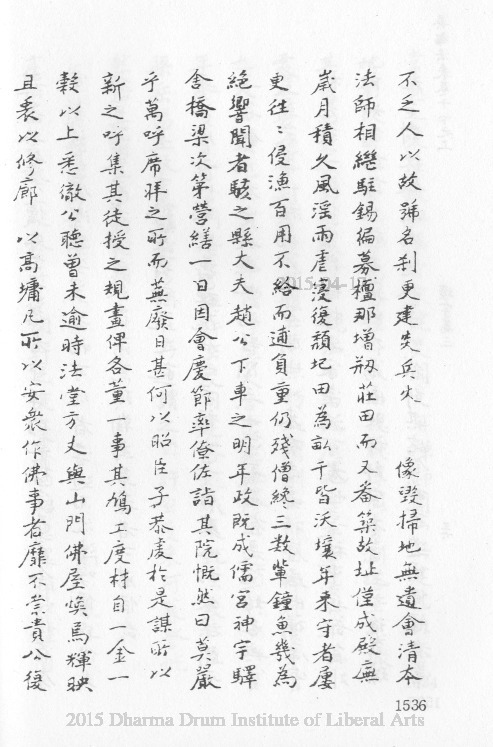 不乏人以故號名刹更建炎兵火　像毀掃地無遺會清本
法師相繼駐錫徧募檀那增剏莊田而又番築故址僅成殿廡
歲月積久風淫雨虐寖復頹圮田為畝千皆沃壤年來守者屢
更往〻侵漁百用不給而逋負重仍殘僧纔三數輩鐘魚幾為
絕響聞者駭之縣大夫趙公下車之明年政既成儒宮神宇驛
舍橋梁次第營繕一日因會慶節率僚佐詣其院慨然曰莫嚴
乎萬呼席拜之所而蕪廢日甚何以昭臣子恭虔於是謀所以
新之呼集其徒授之規畫俾各董一事其鳩工度材自一金一
穀以上悉徹公聽曾未逾時法堂方丈與山門佛屋煥焉輝映
且袤以修廊　以高墉凡所以安衆作佛事者靡不崇貴公復
1536
2015-04-1
2015 Dharma Drum Institute of Liberal Arts